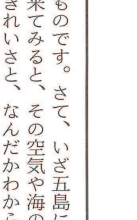 ものです。さて、いざ五島に
来てみると、その空気や海の
きれいさと、なんだかわから